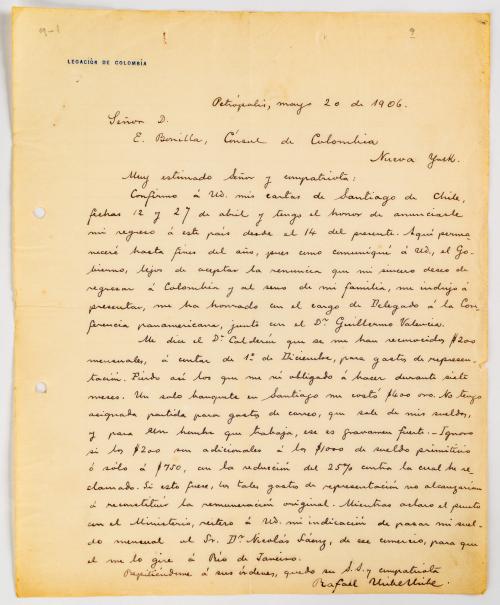 LEGACIÓN DE COLOMBIA
Petrópolis, mayo 20 de 1906.
Señor D.
E. Bonilla, Cónsul de Colombia
Nueva York.
Muy estimado Señor y compatriota:
Confirmo á Ud. mis cartas de Santiago de Chile,
fechas 12 y 27 de abril y tengo el honor de anunciarle
mi regreso á este país desde el 14 del presente. Aquí perma-
neceré hasta fines del año, pues como comuniqué á Ud., el Go-
bierno, lejos de aceptar la renuncia que mi sincero deseo de
regresar á Colombia y al seno de mi familia, me indujo á
presentar, me ha honrado con el cargo de Delegado á la Con-
ferencia panamericana, junto con el Dr. Guillermo Valencia.
Me dice el Dr. Calderón que se me han reconocido $200
mensuales, á contar de 1º de Diciembre, para gastos de represen-
tación. Pierdo así los que me ví obligado á hacer durante siete
meses. Un solo banquete en Santiago me costó $400 oro. No tengo
asignada partida para gastos de correo, que sale de mis sueldos,
y para un hombre que trabaja, ese es gravamen fuerte. Ignoro
si los $200 son adicionales á los $1000 de sueldo primitivo
ó sólo á $750, con la reducción del 25% contra la cual he re-
clamado. Si esto fuere, los tales gastos de representación no alcanzarían
á reconstituír la remuneración original. Mientras aclaro el punto
con el Ministerio, reitero á Ud. mi indicación de pasar mi suel-
do mensual al Sr. Dn. Nicolás Sáenz, de ese comercio, para que
él me lo gire á Río de Janeiro.
Repitiéndome á sus órdenes, quedo su S.S. y compatriota
Rafael Uribe Uribe.